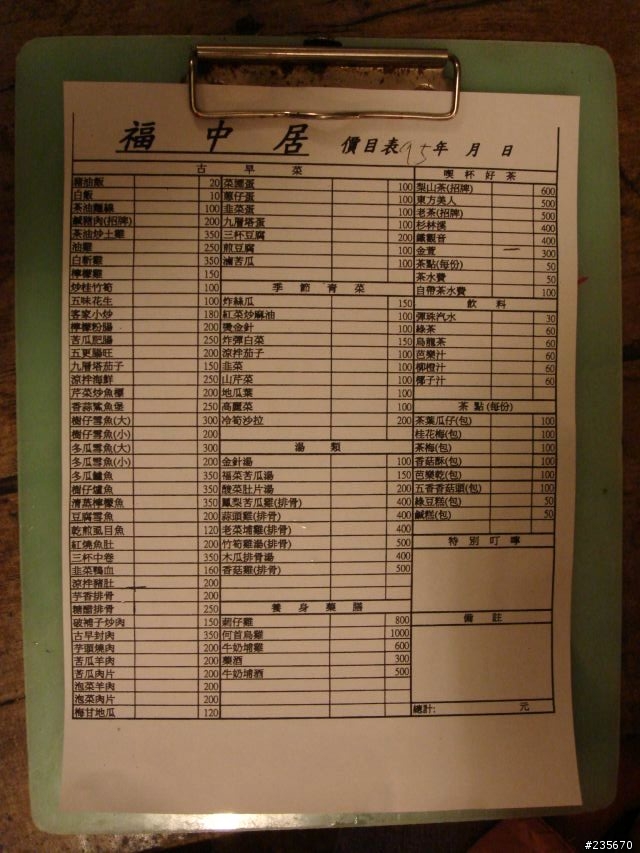 福中居 價目表95年 月 日
古早菜
豬油飯 20
白飯 10
茶油麵線 100
鹹豬肉(招牌) 200
茶油炒土雞 350
油雞 250
白斬雞 350
檸檬雞 150
炒桂竹筍 100
五味花生 100
客家小炒 180
檸檬粉腸 200
苦瓜肥腸 250
五更腸旺 200
九層塔茄子 150
涼拌海鮮 250
芹菜炒魚
香蒜鯊魚煲 250
樹仔雪魚(大) 300
樹仔雪魚(小) 200
冬瓜雪魚(大) 300
冬瓜雪魚(小) 200
冬瓜鱸魚 350
樹仔鱸魚 350
清蒸檸檬魚 350
豆腐雪魚 200
乾煎虱目魚 120
紅燒魚肚 200
三杯中卷 350
韭菜鴨血 160
涼拌豬肚 200
芋香排骨 200
糖醋排骨 250
破補子炒肉 150
古早封肉 350
芋頭燒肉 200
苦瓜羊肉 200
苦瓜肉片 200
泡菜羊肉 200
泡菜肉片 200
梅甘地瓜 120
菜圃蛋 100
蔥仔蛋 100
韭菜蛋 100
九層塔蛋 100
三杯豆腐 100
煎豆腐 100
滷苦瓜 100
季節青菜
炸絲瓜 150
紅菜炒麻油 100
燙金針 100
炸彈白菜 150
涼拌茄子 100
韭菜 100
山芹菜 100
地瓜葉 100
高麗菜 100
冷筍沙拉 200
湯類
金針湯 100
福菜苦瓜湯 150
酸菜肚片湯 200
鳳梨苦瓜雞(排骨) 400
蒜頭雞(排骨) 400
老菜埔雞(排骨) 400
竹筍雞湯(排骨) 500
木瓜排骨湯 400
香菇雞(排骨) 500
養身藥膳
薊仔雞 800
何首烏雞 1000
牛奶埔雞 600
藥酒 300
牛奶埔酒 500
喫杯好茶
梨山茶(招牌) 600
東方美人 500
老茶(招牌) 500
杉林溪 400
鐵觀音 400
金萱 300
茶點(每份) 50
茶水費 50
自帶茶水費 100
飲料
彈珠汽水 30
綠茶 60
烏龍茶 60
芭樂汁 60
柳橙汁 60
椰子汁 60
茶點(每份)
茶葉瓜仔(包) 100
桂花梅(包) 100
茶梅(包) 100
香菇酥(包) 100
芭樂乾(包) 100
五香香菇頭(包) 100
綠豆糕(包) 50
鹹糕(包) 50
特別叮嚀
備註
總計: 元
#235670